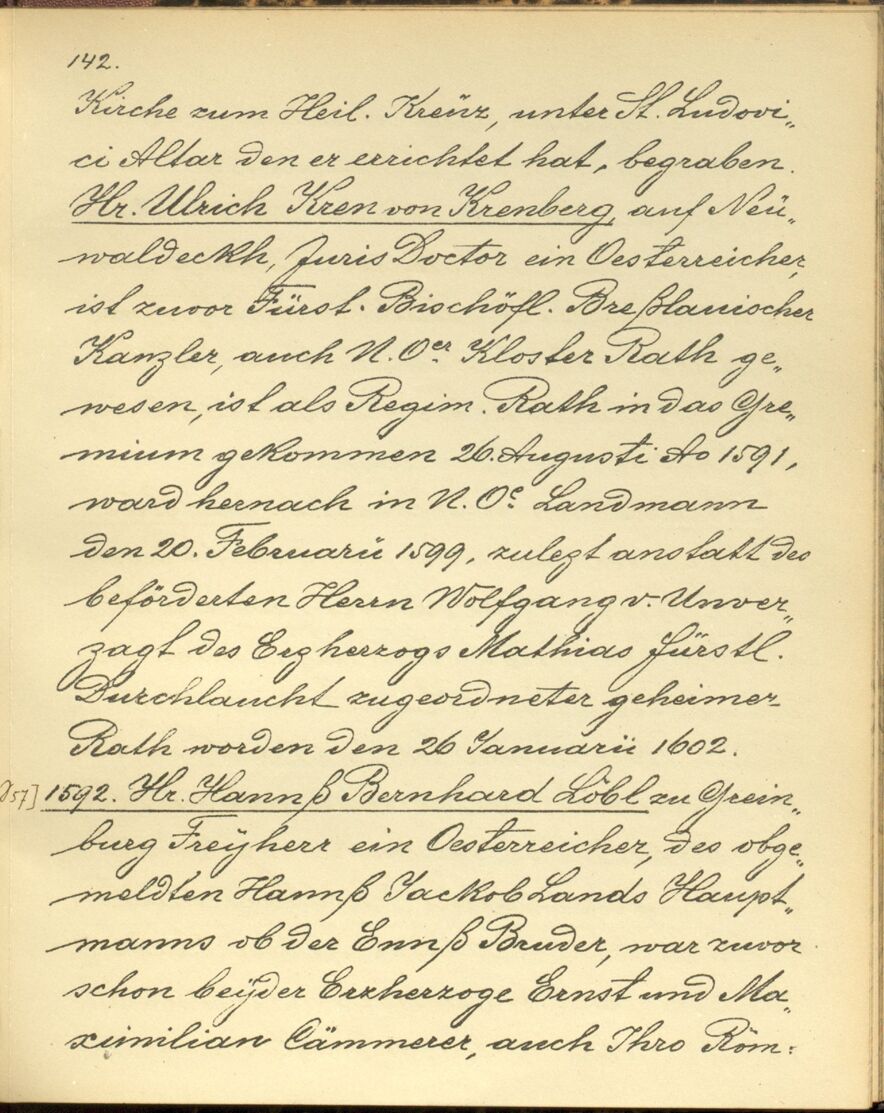 142.
Kirche zum Heil. Kreüz, unter St. Ludovi„
ci Altar den er errichtet hat, begraben.
Hr. Ulrich Kren von Krenberg, auf Neü„
waldeckh, Juris Doctor ein Oesterreicher,
ist zuvor Fürst. Bischöfl. Breßlauischer
Kanzler, auch N. Oer Kloster Rath ge„
wesen, ist als Regim. Rath in das Gre„
mium gekommen 26. Augusti Ao 1591,
ward hernach in N. Oe. Landmann
den 20. Februarii 1599, zulezt anstatt des
beförderten Herrn Wolfgang v. Unver„
zagt des Erzherzogs Mathias fürstl.
Durchlaucht zugeordneter geheimer
Rath worden den 26 Januarii 1602.
1592. Hr. Hannß Bernhard Löbl zu Grein„
burg Freÿherr ein Oesterreicher, des obge„
meldten Hannß Jackob Lands Haupt„
manns ob der Ennß Bruder, war zuvor
schon beÿder Erzherzoge Ernst und Ma„
ximilian Cämmerer, auch Ihro Röm: